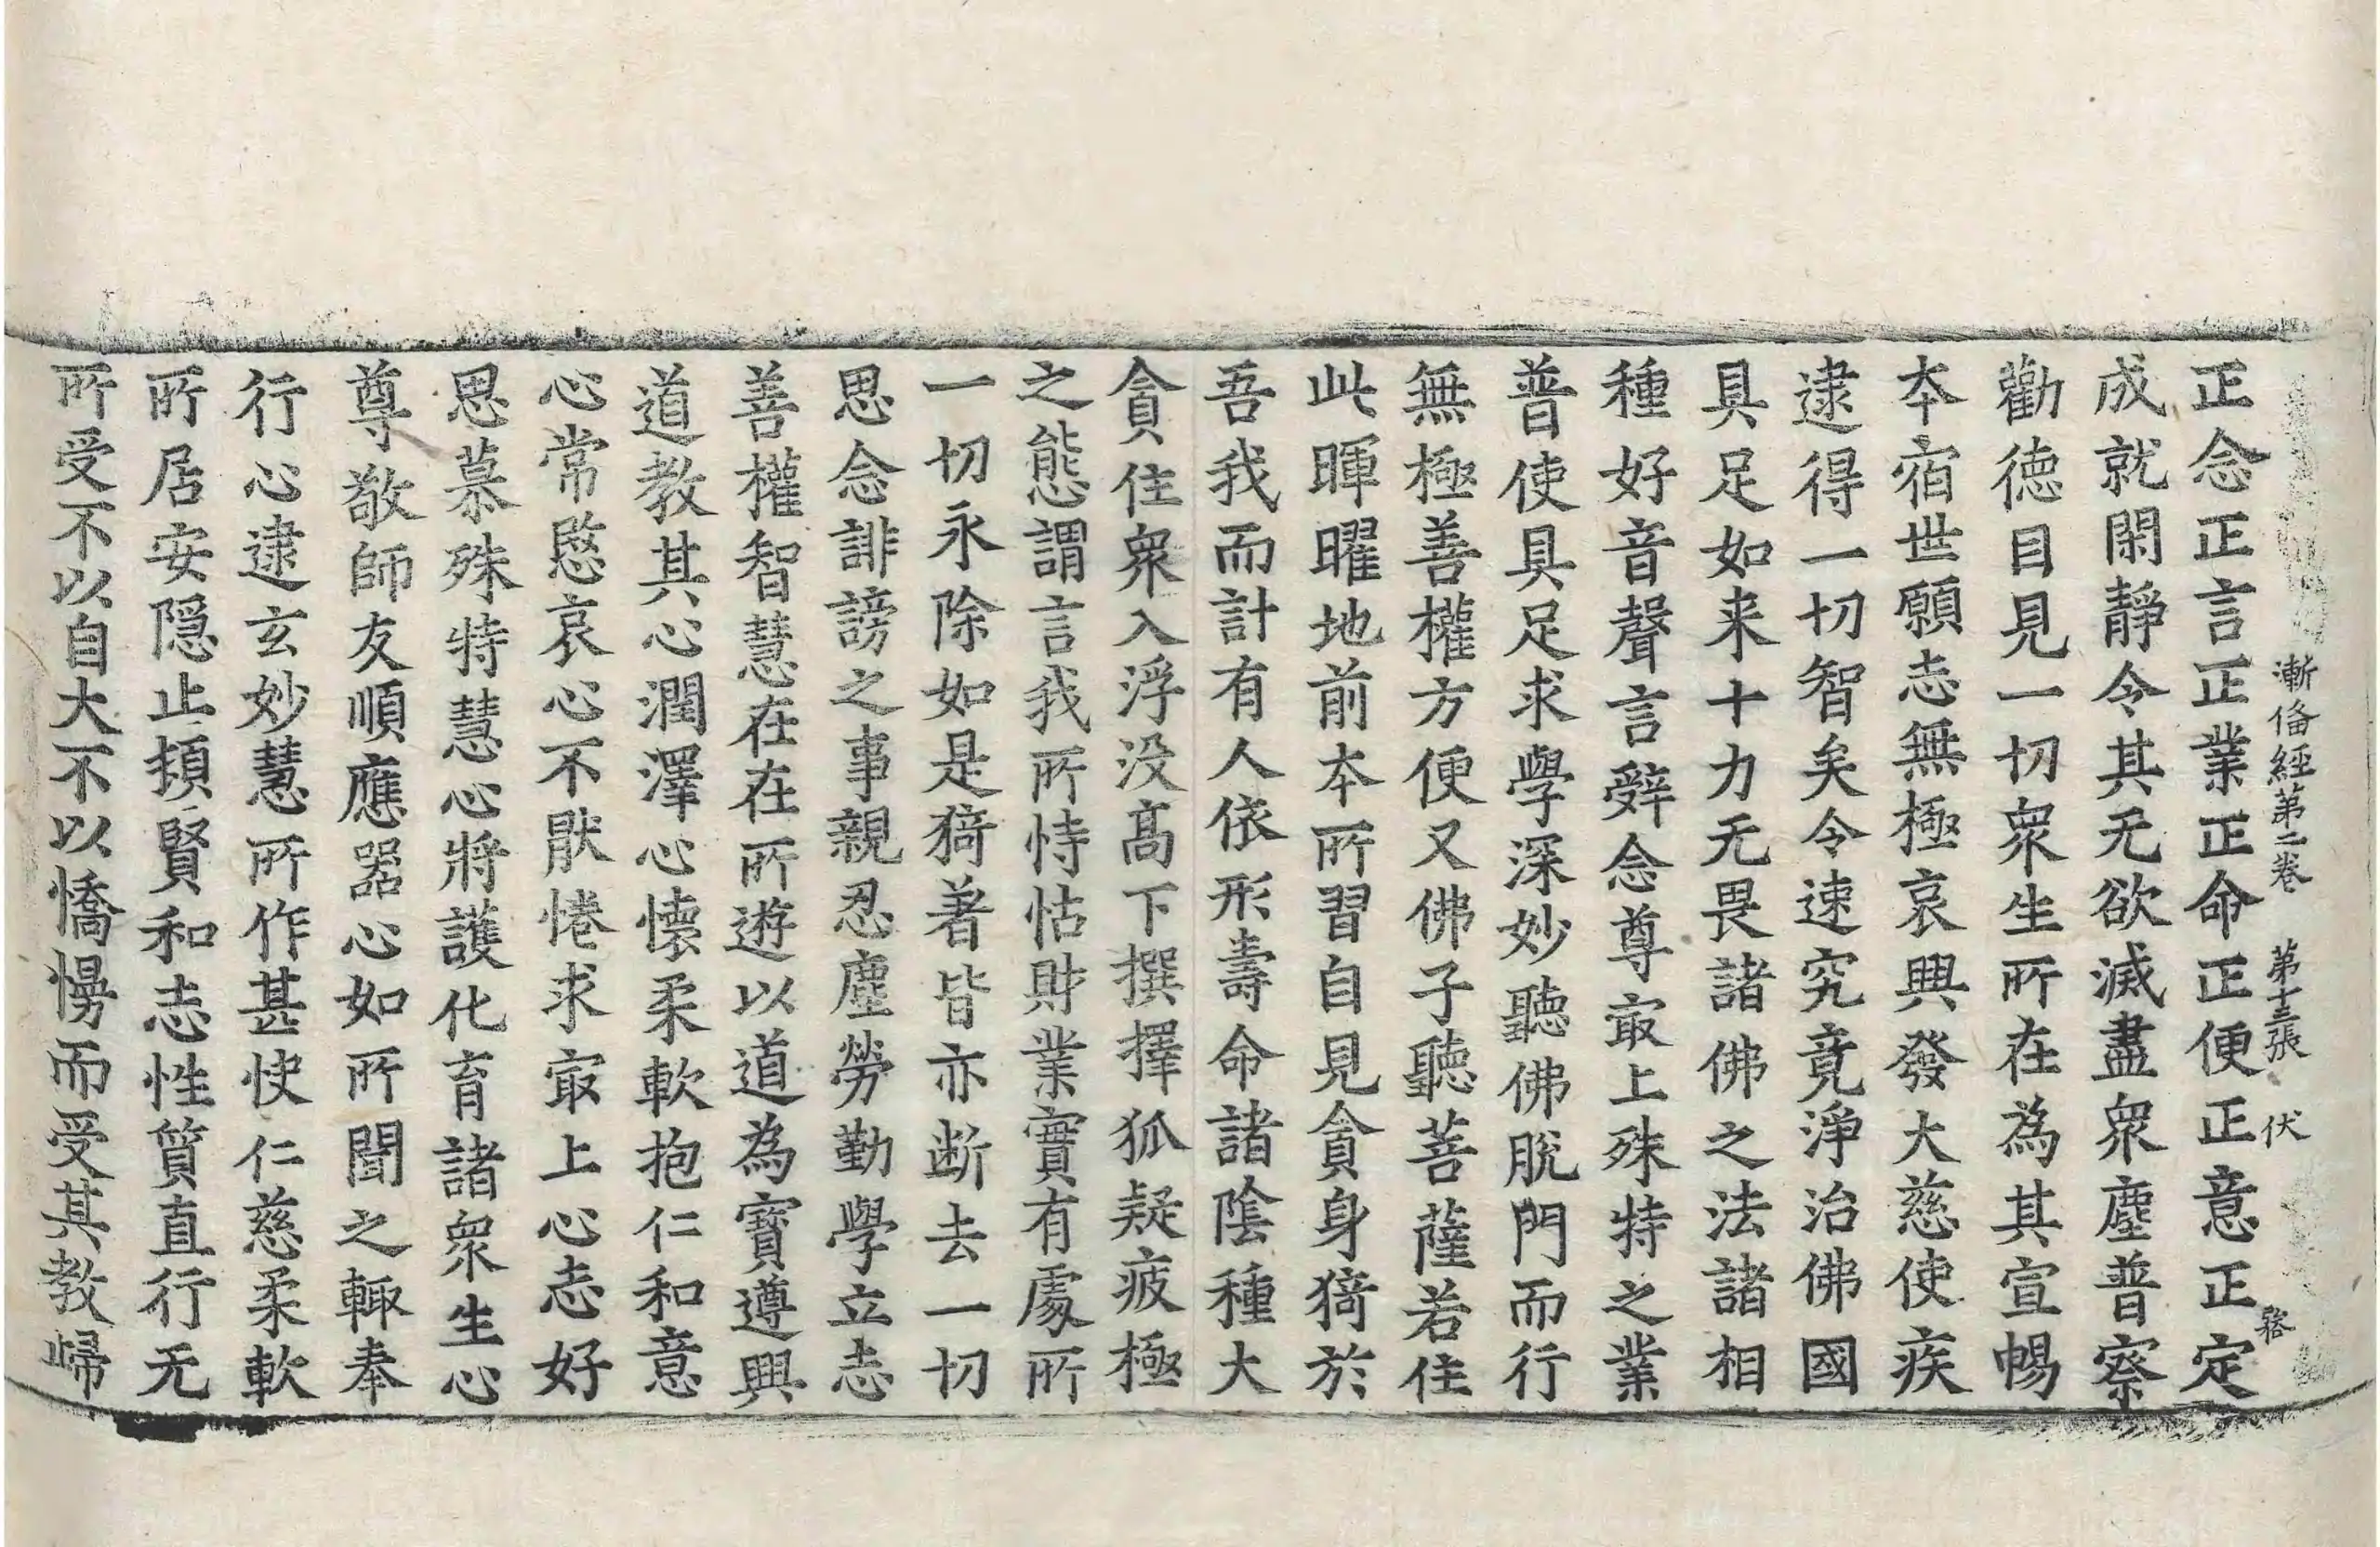 漸俻經第二卷　第十三張　伏
正念正言正業正命正便正意正定
成就閑靜令其无欲滅盡衆塵普察
勸德目見一切衆生所在為其宣暢
本宿世願志無極哀興發大慈使疾
逮得一切智矣令速究竟淨治佛國
具足如来十力无畏諸佛之法諸相
種好音聲言辭念尊㝡上殊特之業
普使具足求學深妙聽佛脫門而行
無極善權方便又佛子聽菩薩若住
此暉曜地前本所習自見貪身猗於
吾我而計有人依形壽命諸陰種大
貪住衆入浮没髙下撰擇狐疑疲極
之態謂言我所恃怙財業實有處所
一切永除如是猗著皆亦断去一切
思念誹謗之事親忍塵勞勤學立志
善權智慧在在所遊以道為寳遵興
道教其心潤澤心懐柔軟抱仁和意
心常愍哀心不猒惓求㝡上心志好
思慕殊特慧心將護化育諸衆生心
尊敬師友順應器心如所聞之輙奉
行心逮玄妙慧所作甚快仁慈柔軟
所居安隠止㩀賢和志性質直行无
所受不以自大不以憍慢而受其教㱕